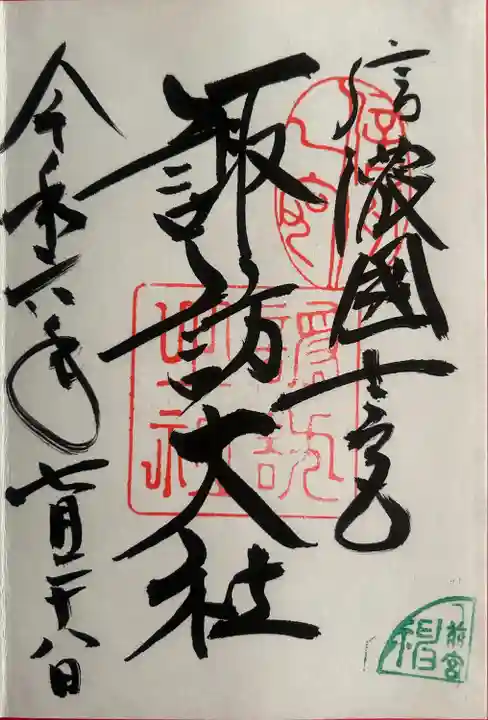 信濃國一之宮
諏訪大社
令和六年七月二十八日
諏訪大社
前宮